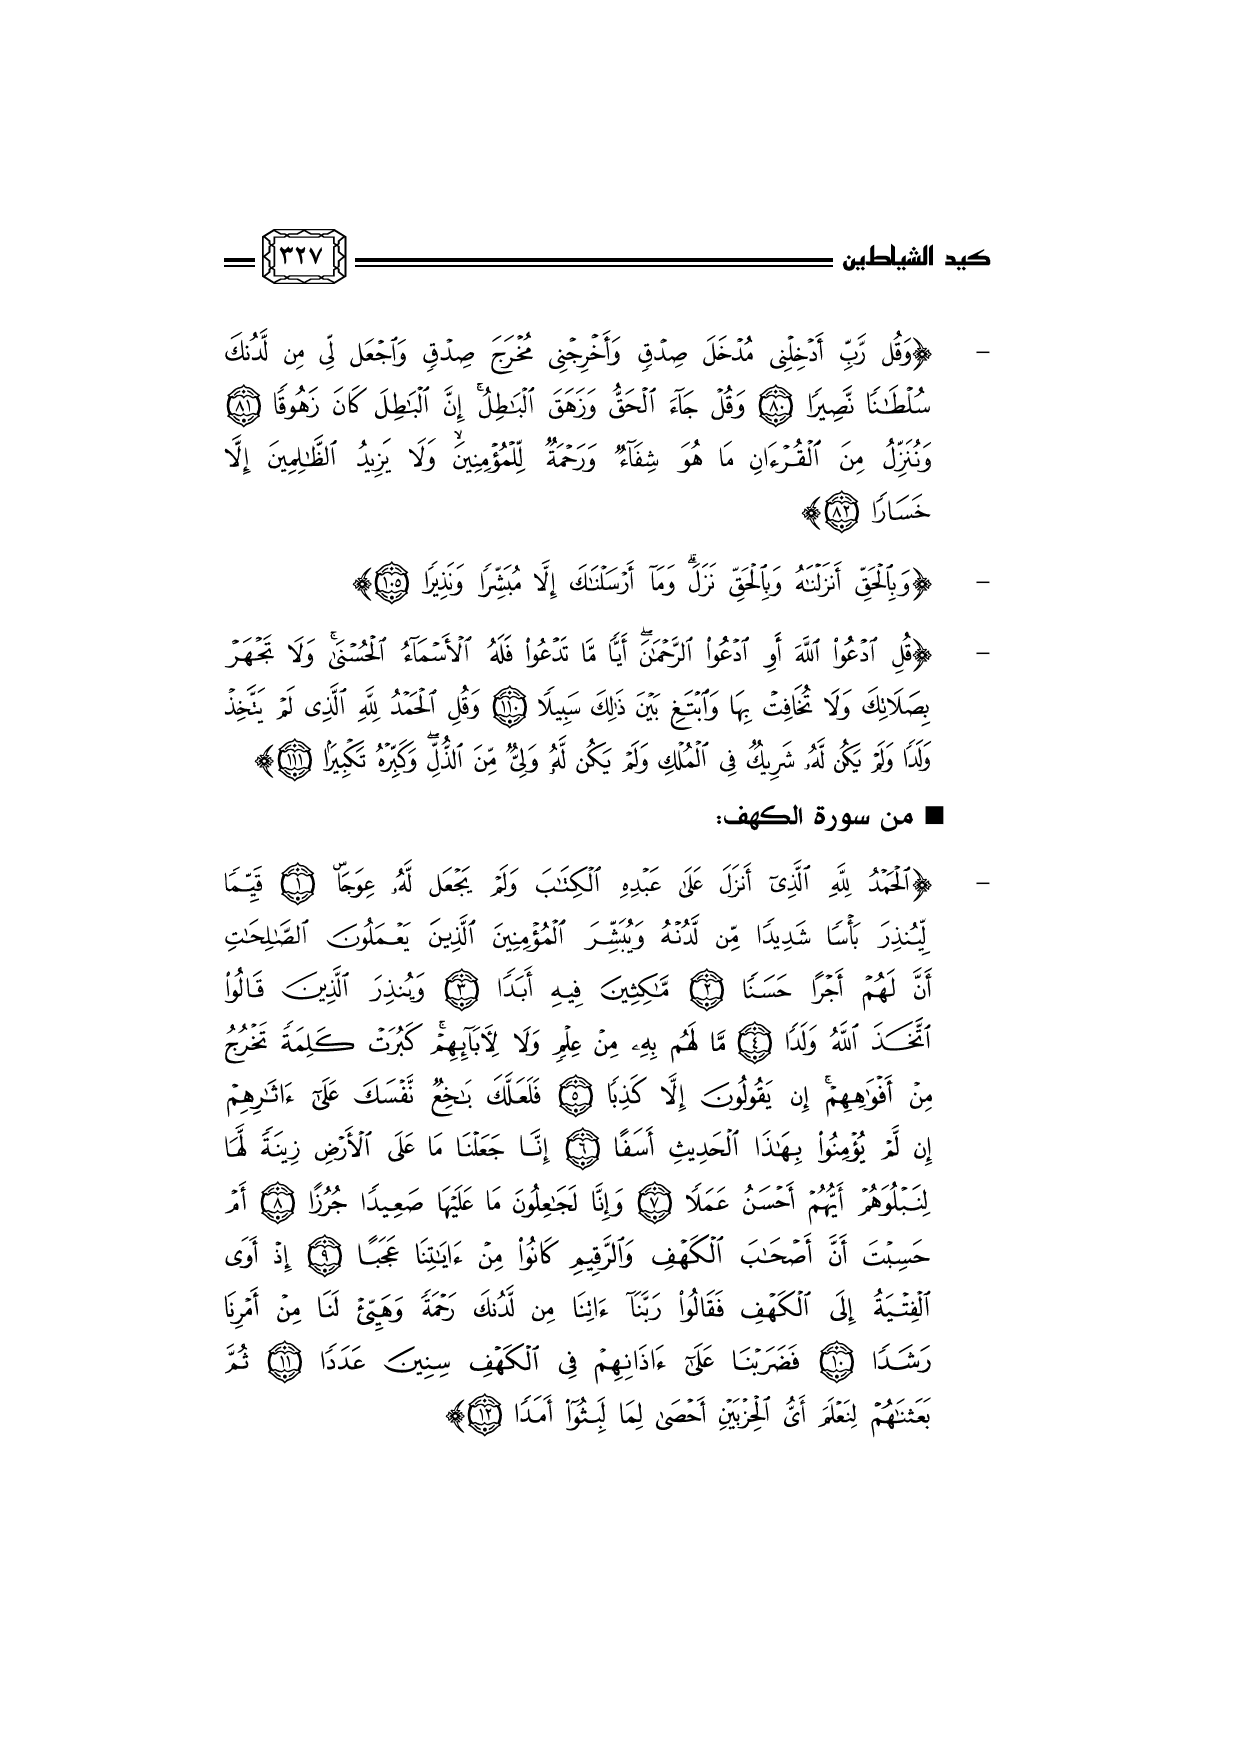 كيد الشياطين
٣٢٧
- ﴿وَقُل رَّبِّ أَدۡخِلۡنِي مُدۡخَلَ صِدۡقٖ وَأَخۡرِجۡنِي مُخۡرَجَ صِدۡقٖ وَٱجۡعَل لِّي مِن لَّدُنكَ
سُلۡطَٰنٗا نَّصِيرٗا ٨٠ وَقُلۡ جَآءَ ٱلۡحَقُّ وَزَهَقَ ٱلۡبَٰطِلُۚ إِنَّ ٱلۡبَٰطِلَ كَانَ زَهُوقٗا ٨١
وَنُنَزِّلُ مِنَ ٱلۡقُرۡءَانِ مَا هُوَ شِفَآءٞ وَرَحۡمَةٞ لِّلۡمُؤۡمِنِينَۙ وَلَا يَزِيدُ ٱلظَّٰلِمِينَ إِلَّا
خَسَارٗا ٨٢﴾
- ﴿وَبِٱلۡحَقِّ أَنزَلۡنَٰهُ وَبِٱلۡحَقِّ نَزَلَۗ وَمَآ أَرۡسَلۡنَٰكَ إِلَّا مُبَشِّرٗا وَنَذِيرٗا ١٠٥﴾
- ﴿قُلِ ٱدۡعُواْ ٱللَّهَ أَوِ ٱدۡعُواْ ٱلرَّحۡمَٰنَۖ أَيّٗا مَّا تَدۡعُواْ فَلَهُ ٱلۡأَسۡمَآءُ ٱلۡحُسۡنَىٰۚ وَلَا تَجۡهَرۡ
بِصَلَاتِكَ وَلَا تُخَافِتۡ بِهَا وَٱبۡتَغِ بَيۡنَ ذَٰلِكَ سَبِيلٗا ١١٠ وَقُلِ ٱلۡحَمۡدُ لِلَّهِ ٱلَّذِي لَمۡ يَتَّخِذۡ
وَلَدٗا وَلَمۡ يَكُن لَّهُۥ شَرِيكٞ فِي ٱلۡمُلۡكِ وَلَمۡ يَكُن لَّهُۥ وَلِيّٞ مِّنَ ٱلذُّلِّۖ وَكَبِّرۡهُ تَكۡبِيرَۢا ١١١﴾
■ من سورة الكهف:
- ﴿ٱلۡحَمۡدُ لِلَّهِ ٱلَّذِيٓ أَنزَلَ عَلَىٰ عَبۡدِهِ ٱلۡكِتَٰبَ وَلَمۡ يَجۡعَل لَّهُۥ عِوَجَاۜ ١ قَيِّمٗا
لِّيُنذِرَ بَأۡسٗا شَدِيدٗا مِّن لَّدُنۡهُ وَيُبَشِّرَ ٱلۡمُؤۡمِنِينَ ٱلَّذِينَ يَعۡمَلُونَ ٱلصَّٰلِحَٰتِ
أَنَّ لَهُمۡ أَجۡرًا حَسَنٗا ٢ مَّٰكِثِينَ فِيهِ أَبَدٗا ٣ وَيُنذِرَ ٱلَّذِينَ قَالُواْ
ٱتَّخَذَ ٱللَّهُ وَلَدٗا ٤ مَّا لَهُم بِهِۦ مِنۡ عِلۡمٖ وَلَا لِأٓبَآئِهِمۡۚ كَبُرَتۡ كَلِمَةٗ تَخۡرُجُ
مِنۡ أَفۡوَٰهِهِمۡۚ إِن يَقُولُونَ إِلَّا كَذِبٗا ٥ فَلَعَلَّكَ بَٰخِعٞ نَّفۡسَكَ عَلَىٰٓ ءَاثَٰرِهِمۡ
إِن لَّمۡ يُؤۡمِنُواْ بِهَٰذَا ٱلۡحَدِيثِ أَسَفًا ٦ إِنَّا جَعَلۡنَا مَا عَلَى ٱلۡأَرۡضِ زِينَةٗ لَّهَا
لِنَبۡلُوَهُمۡ أَيُّهُمۡ أَحۡسَنُ عَمَلٗا ٧ وَإِنَّا لَجَٰعِلُونَ مَا عَلَيۡهَا صَعِيدٗا جُرُزًا ٨ أَمۡ
حَسِبۡتَ أَنَّ أَصۡحَٰبَ ٱلۡكَهۡفِ وَٱلرَّقِيمِ كَانُواْ مِنۡ ءَايَٰتِنَا عَجَبًا ٩ إِذۡ أَوَى
ٱلۡفِتۡيَةُ إِلَى ٱلۡكَهۡفِ فَقَالُواْ رَبَّنَآ ءَاتِنَا مِن لَّدُنكَ رَحۡمَةٗ وَهَيِّئۡ لَنَا مِنۡ أَمۡرِنَا
رَشَدٗا ١٠ فَضَرَبۡنَا عَلَىٰٓ ءَاذَانِهِمۡ فِي ٱلۡكَهۡفِ سِنِينَ عَدَدٗا ١١ ثُمَّ
بَعَثۡنَٰهُمۡ لِنَعۡلَمَ أَيُّ ٱلۡحِزۡبَيۡنِ أَحۡصَىٰ لِمَا لَبِثُوٓاْ أَمَدٗا ١٢﴾